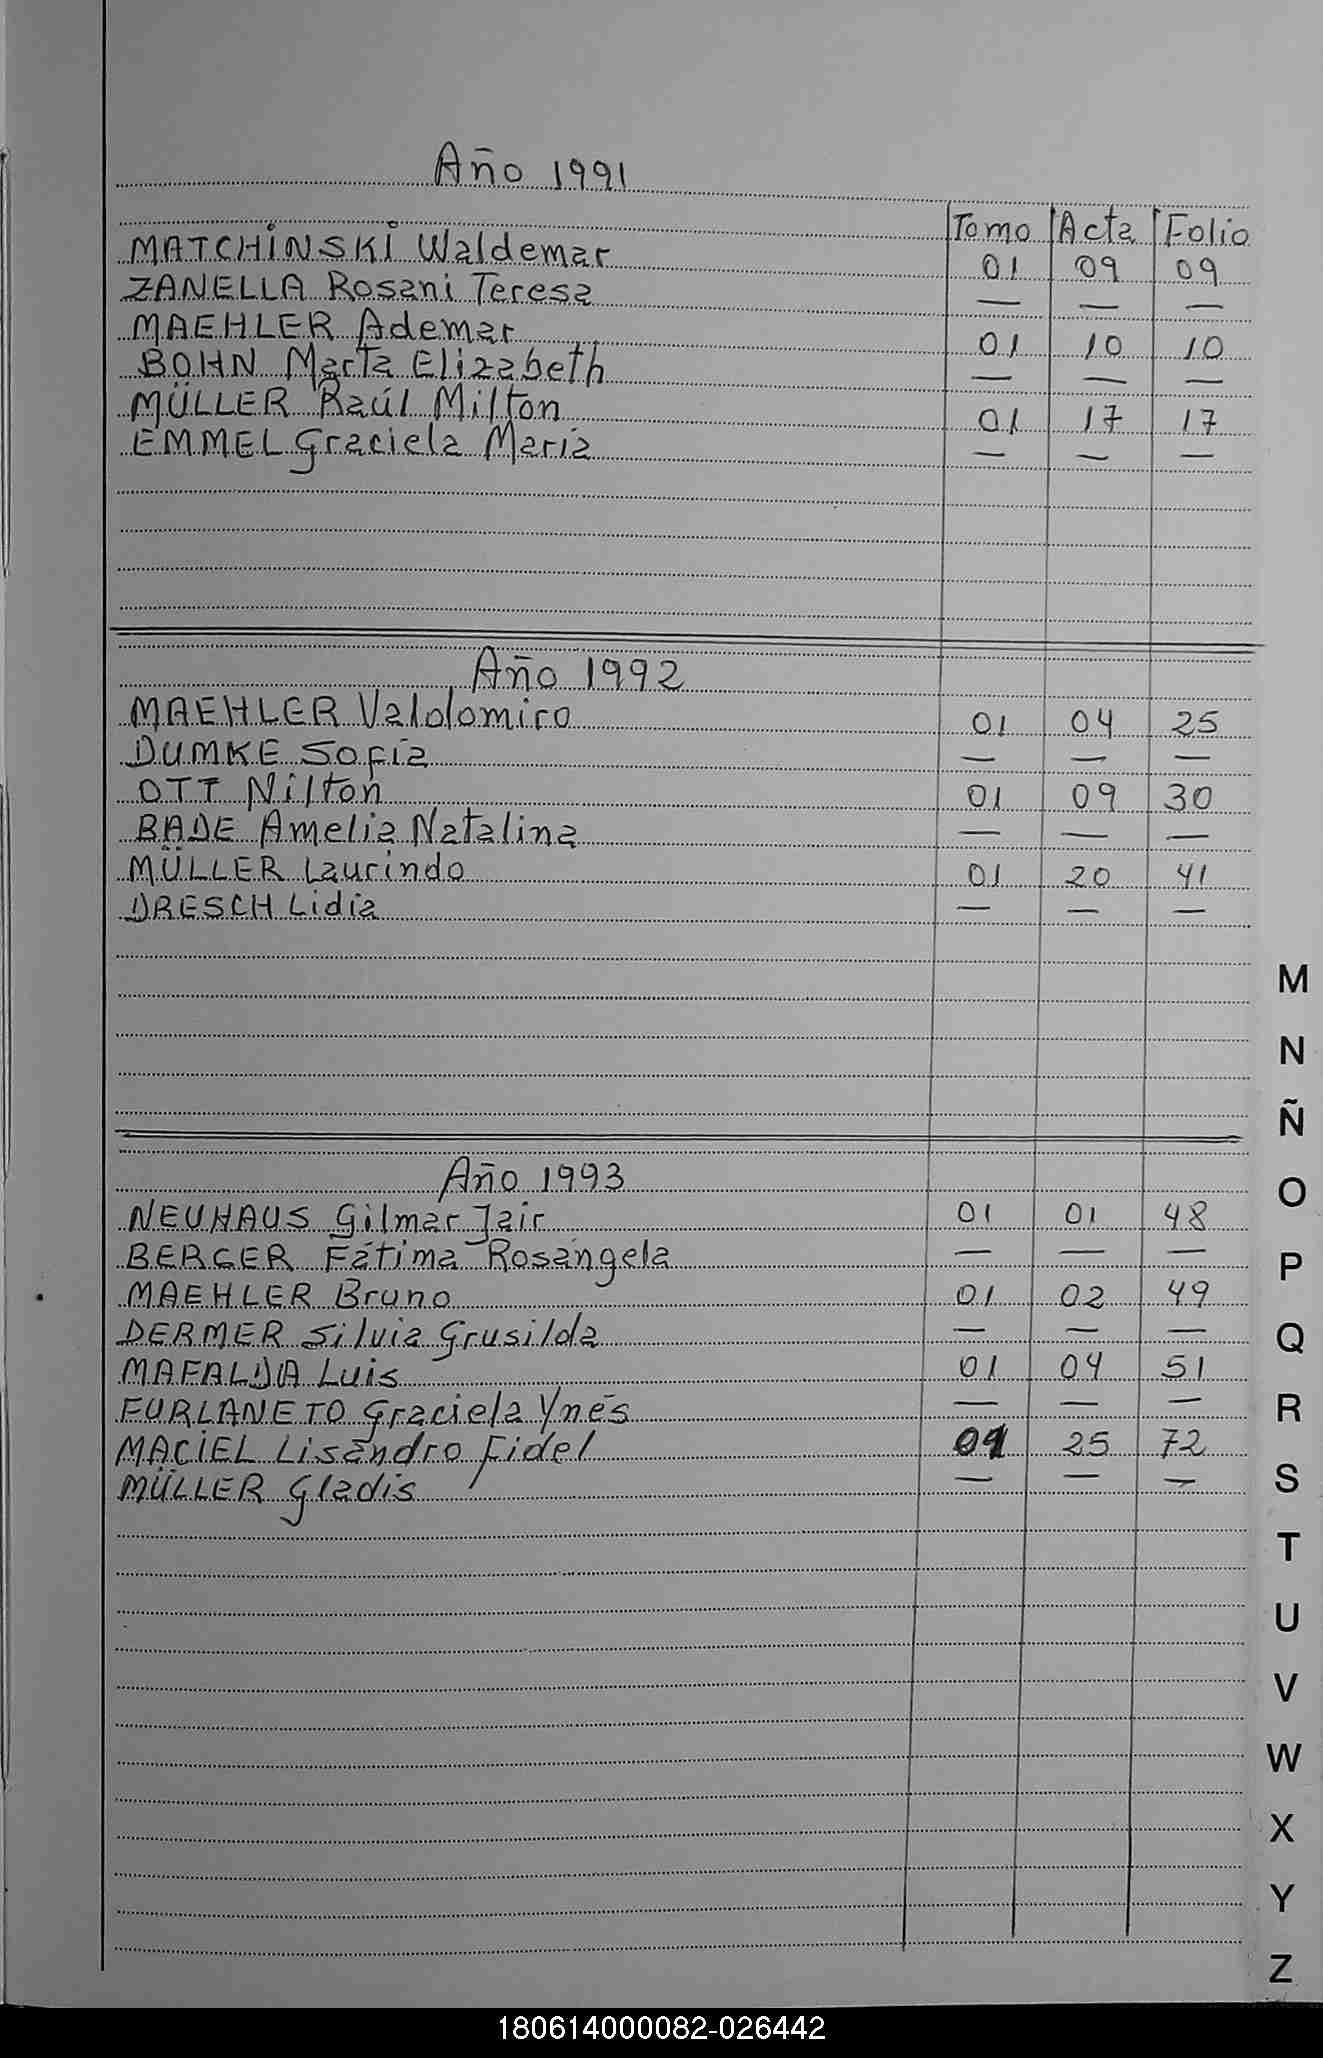 Año 1991
Tomo Acta Folio
MATCHiNSKi Waldemar 01 09 09
ZANELLA Rosani Teresa — — —
MAEHLER Ademar 01 10 10
BOHN Marta Elizabeth — — —
MÜLLER Raúl Milton 01 17 17
EMMEL Graciela Maria — — —
Año 1992
MAEHLER Valdomiro 01 04 25
DUMKE Sofia — — —
OTT Nilton 01 09 30
BADE Amelia Natalina — — —
MÜLLER Laurindo 01 20 41
DRESCH Lidia — — —
Año 1993
NEUHAUS Gilmar Jair 01 01 48
BERGER Fátima Rosangela — — —
MAEHLER Bruno 01 02 49
DERMER Silvia Grusilda — — —
MAFALDA Luis 01 04 51
FURLANETO Graciela Ynés — — —
MACiEL Lisandro Fidel 01 25 72
MÜLLER Gladis — — —
M
N
Ñ
O
P
Q
R
S
T
U
V
W
X
Y
Z
180614000082-026442